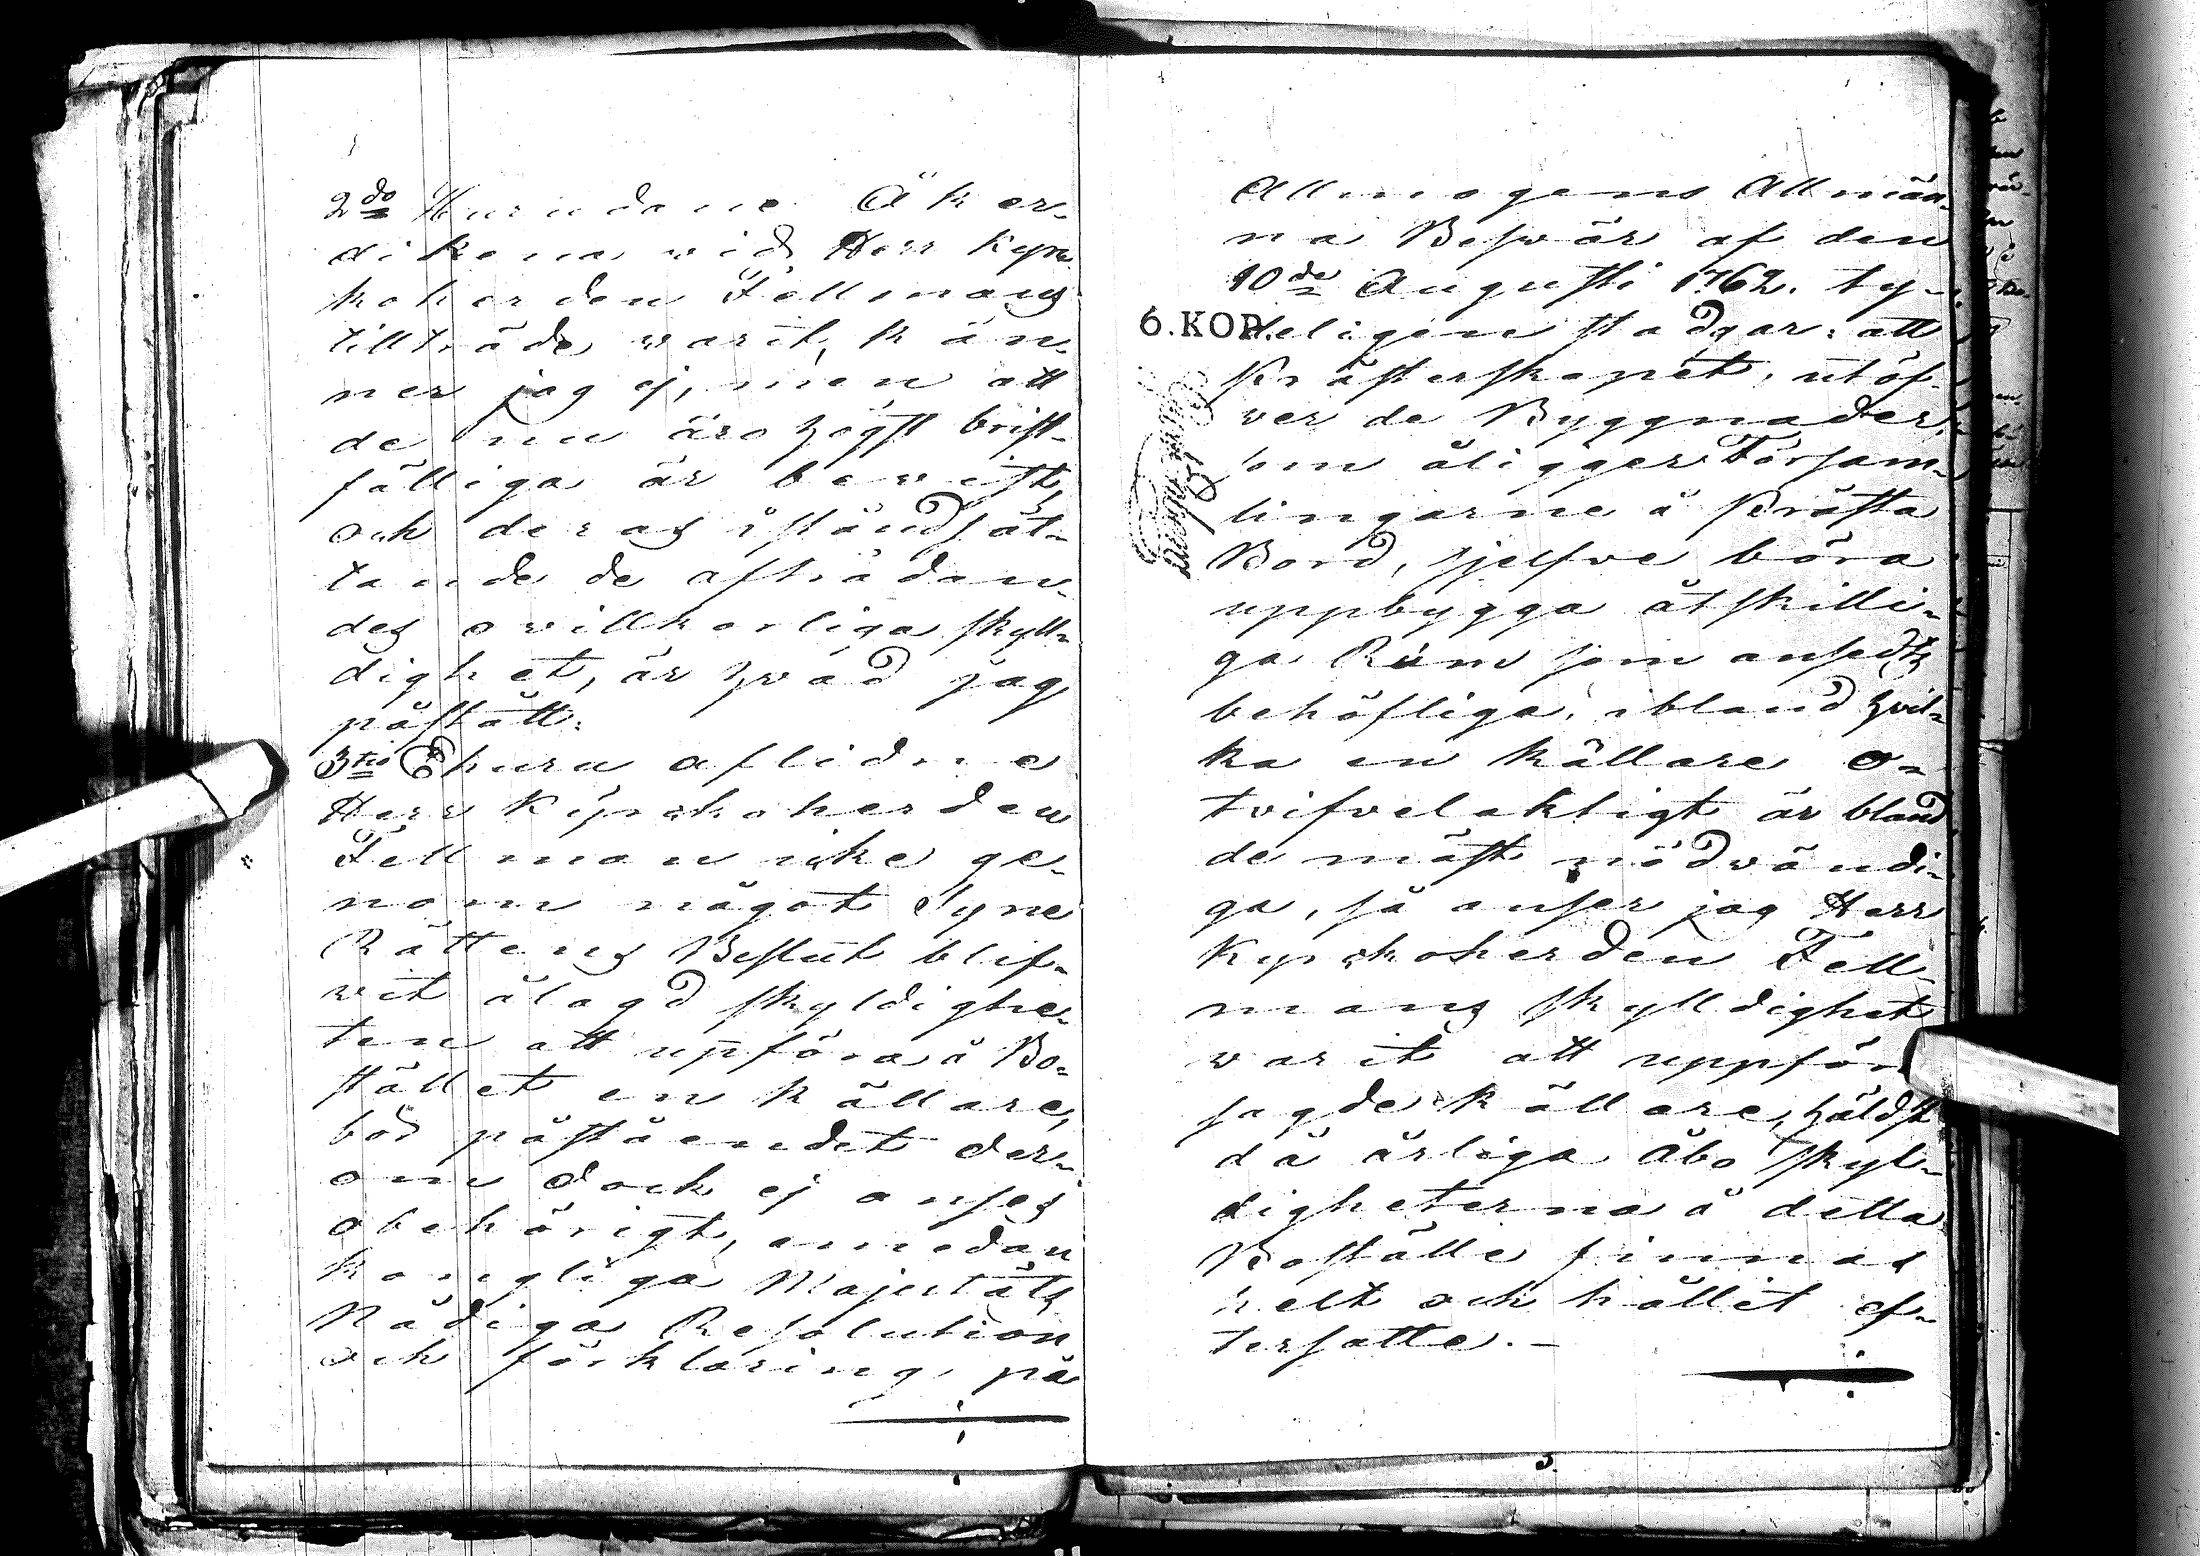 2do Hurudane Åker-
dikena vid Herr Kyrc-
koherden Fellmans
tillträde varit, kän-
ner jag ej, men att
de nu äro högst brist-
fälliga är bevist,
och deras iståndsät-
tande de afträdan-
des ovillkorliga skyll-
dighet, är hvad jag
påstått.
3tio Ehuru aflidne
Herr Kyrckoherden
Fellman icke ge-
nom något Syne
Rättens Beslut blif-
vit ålagd skyldighe-
ten att upföra å Bo-
stället en källare,
bör påståendet der-
om dock ej anses
obehörigt, emedan
Kongliga Majestäts
Nådiga Resolution
och förklaring på
Allmogens Allmän-
na Besvär af den
10de Augusti 1762. ty-
6.KOP.
deligen stadgar: att
Prästerskapet, utöf-
ver de Byggnader,
som åligger Försam-
lingarne å Prästa
Bord, sjelfve böra
uppbygga åtskilli-
ga Rum som ansedts
behöfliga, ibland hvil-
ka en källare o-
tvifvelaktigt är bland
de mäst nödvändi-
ga, så anser jag Herr
Kyrckoherden Fell-
mans skylldighet
varit att uppför
sagde källare, häldst
då årliga Åbo skyl-
digheterna å detta
Boställe finnas
helt och hållit ef-
tersatte.-